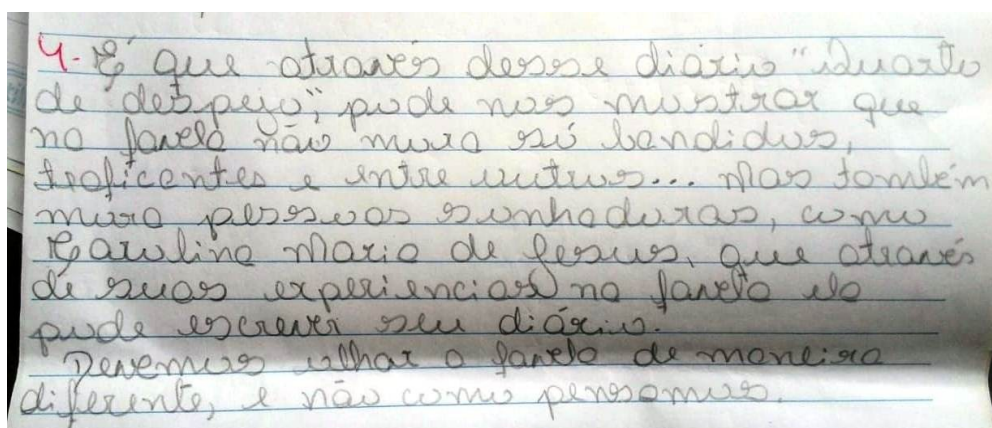 4- É que através desse diário "Quarto
de despejo", pode nos mostrar que
na favela não mora só bandidos,
traficantes e entre outros... Mas também
mora pessoas sonhadoras, como
Carolina Maria de Jesus, que através
de suas experiencias na favela ela
pude escrever seu diário.
Devemos olhar a favela de maneira
diferente, e não como pensamos.